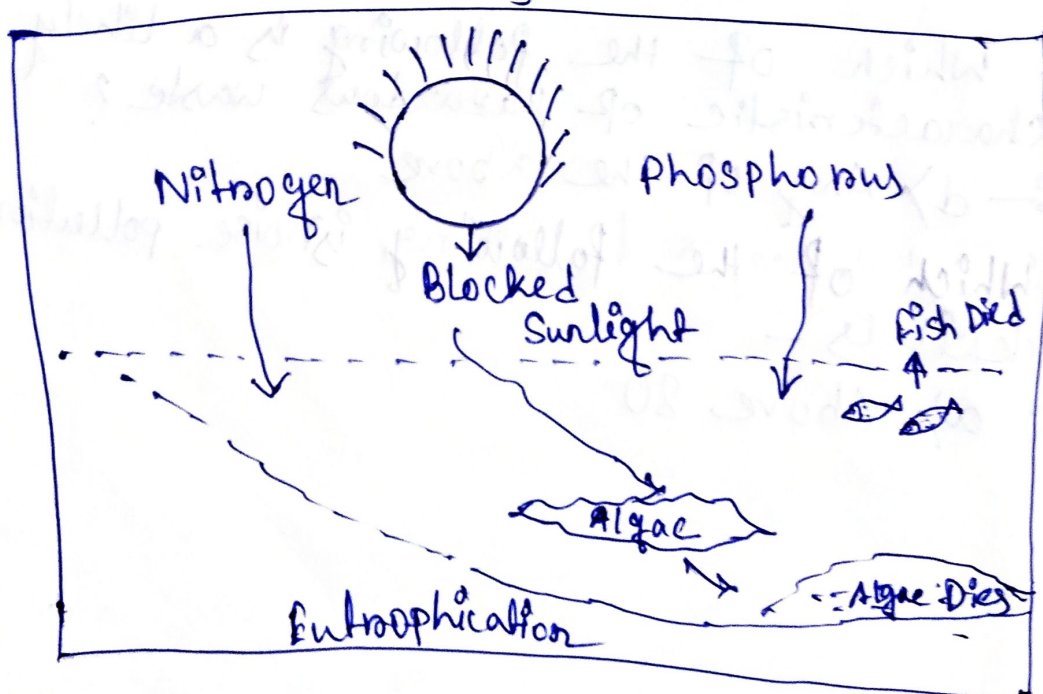 Nitrogen
Phosphorus
Blocked
Sunlight
Fish Died
Algae
Algae Dies
Eutrophication